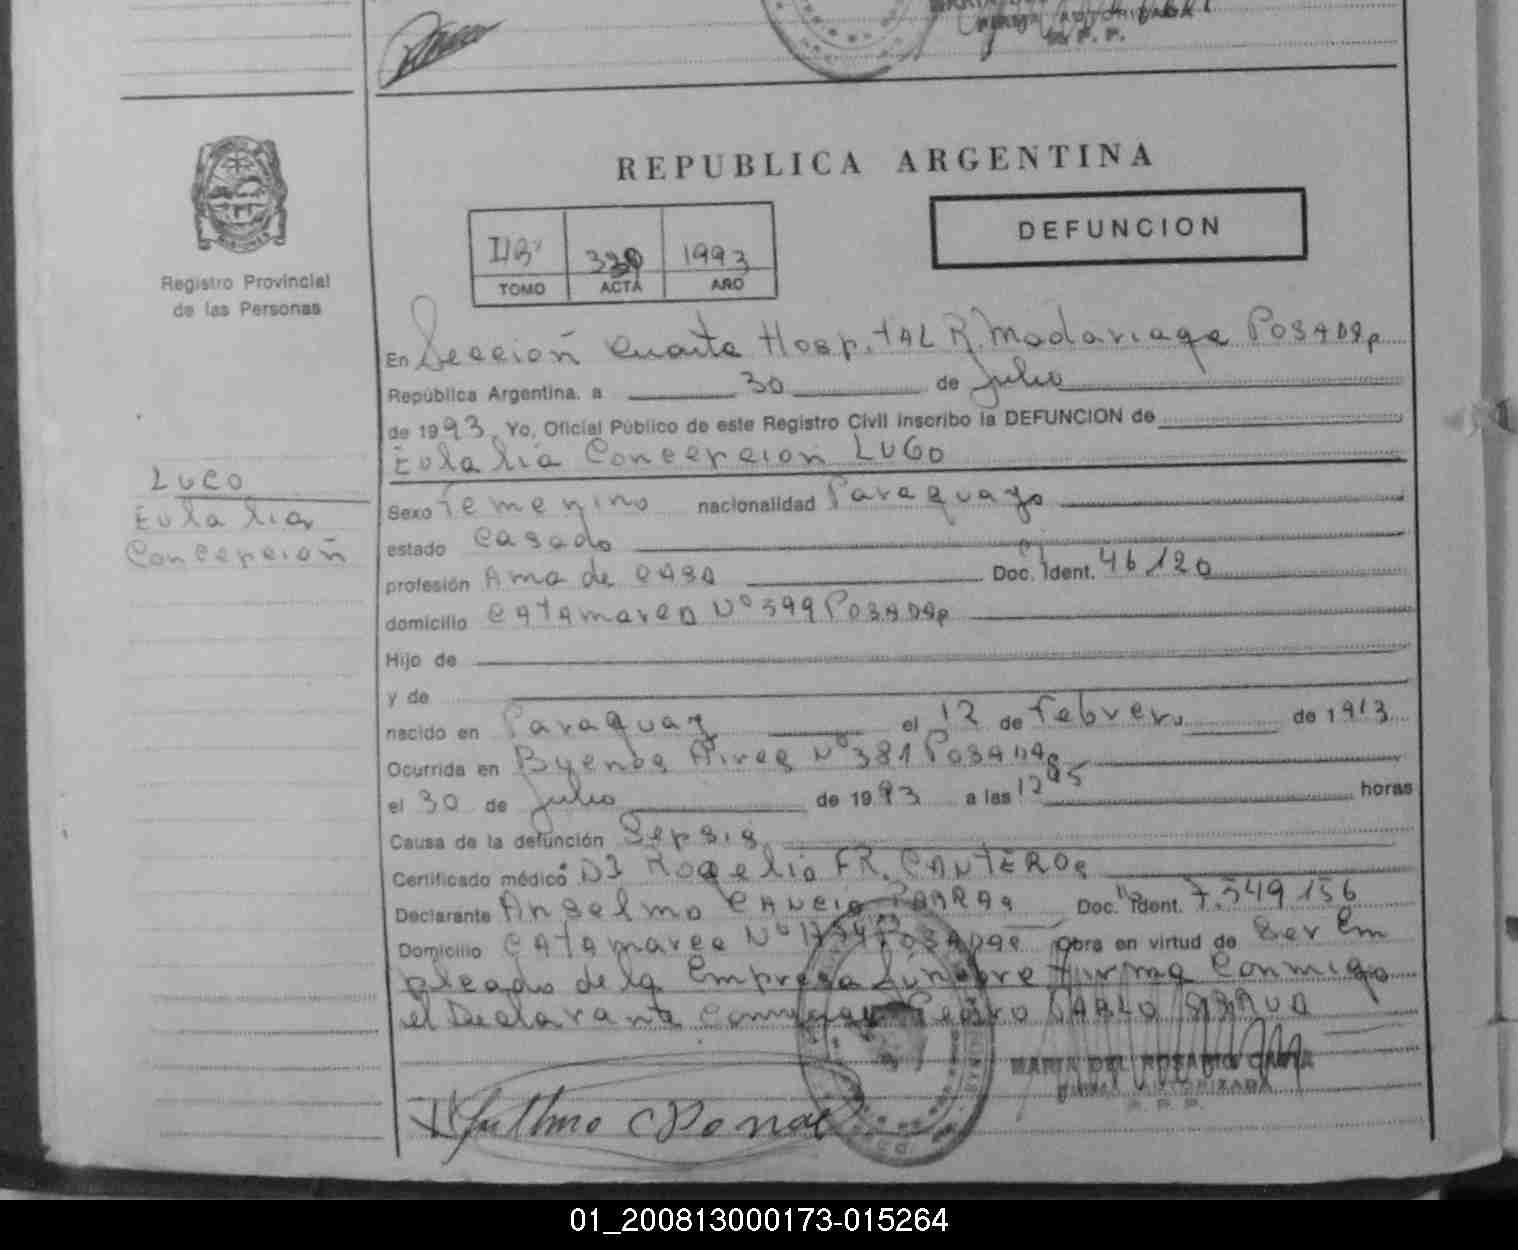 FIRMA AUTORIZADA
R. P. P.
REPUBLICA ARGENTINA
DEFUNCION
1993
TOMO ACTA AÑO
Registro Provincial
de las Personas
En Sección Cuarta Hospital R. Madariaga Posadas
República Argentina, a 30 de Julio
de 1993 Yo, Oficial Público de este Registro Civil inscribo la DEFUNCION de
Eulalia Concepcion LUGO
LUGO
Eulalia
Concepción
Sexo Femenino nacionalidad Paraguaya
estado Casado
profesión Ama de CASA Doc. Ident. CI 46120
domicilio CATAMARCA Nº 599 POSADAS
Hijo de
y de
nacido en Paraguay el 12 de Febrero de 1913
Ocurrida en Buenos Aires Nº 381 POSADAS
el 30 de Julio de 1993 a las 12 horas
Causa de la defunción Sepsis
Certificado médico Rogelio FR. CANTEROS
Declarante Anselmo Doc. Ident. 7.549.156
Domicilio CATAMARCA Nº POSADAS Obra en virtud de ser em
pleado de la Empresa Funebre Firma Conmigo
el Declarante Pedro PABLO
MARIA DEL ROSARIO
FIRMA AUTORIZADA
R. P. P.
01_200813000173-015264